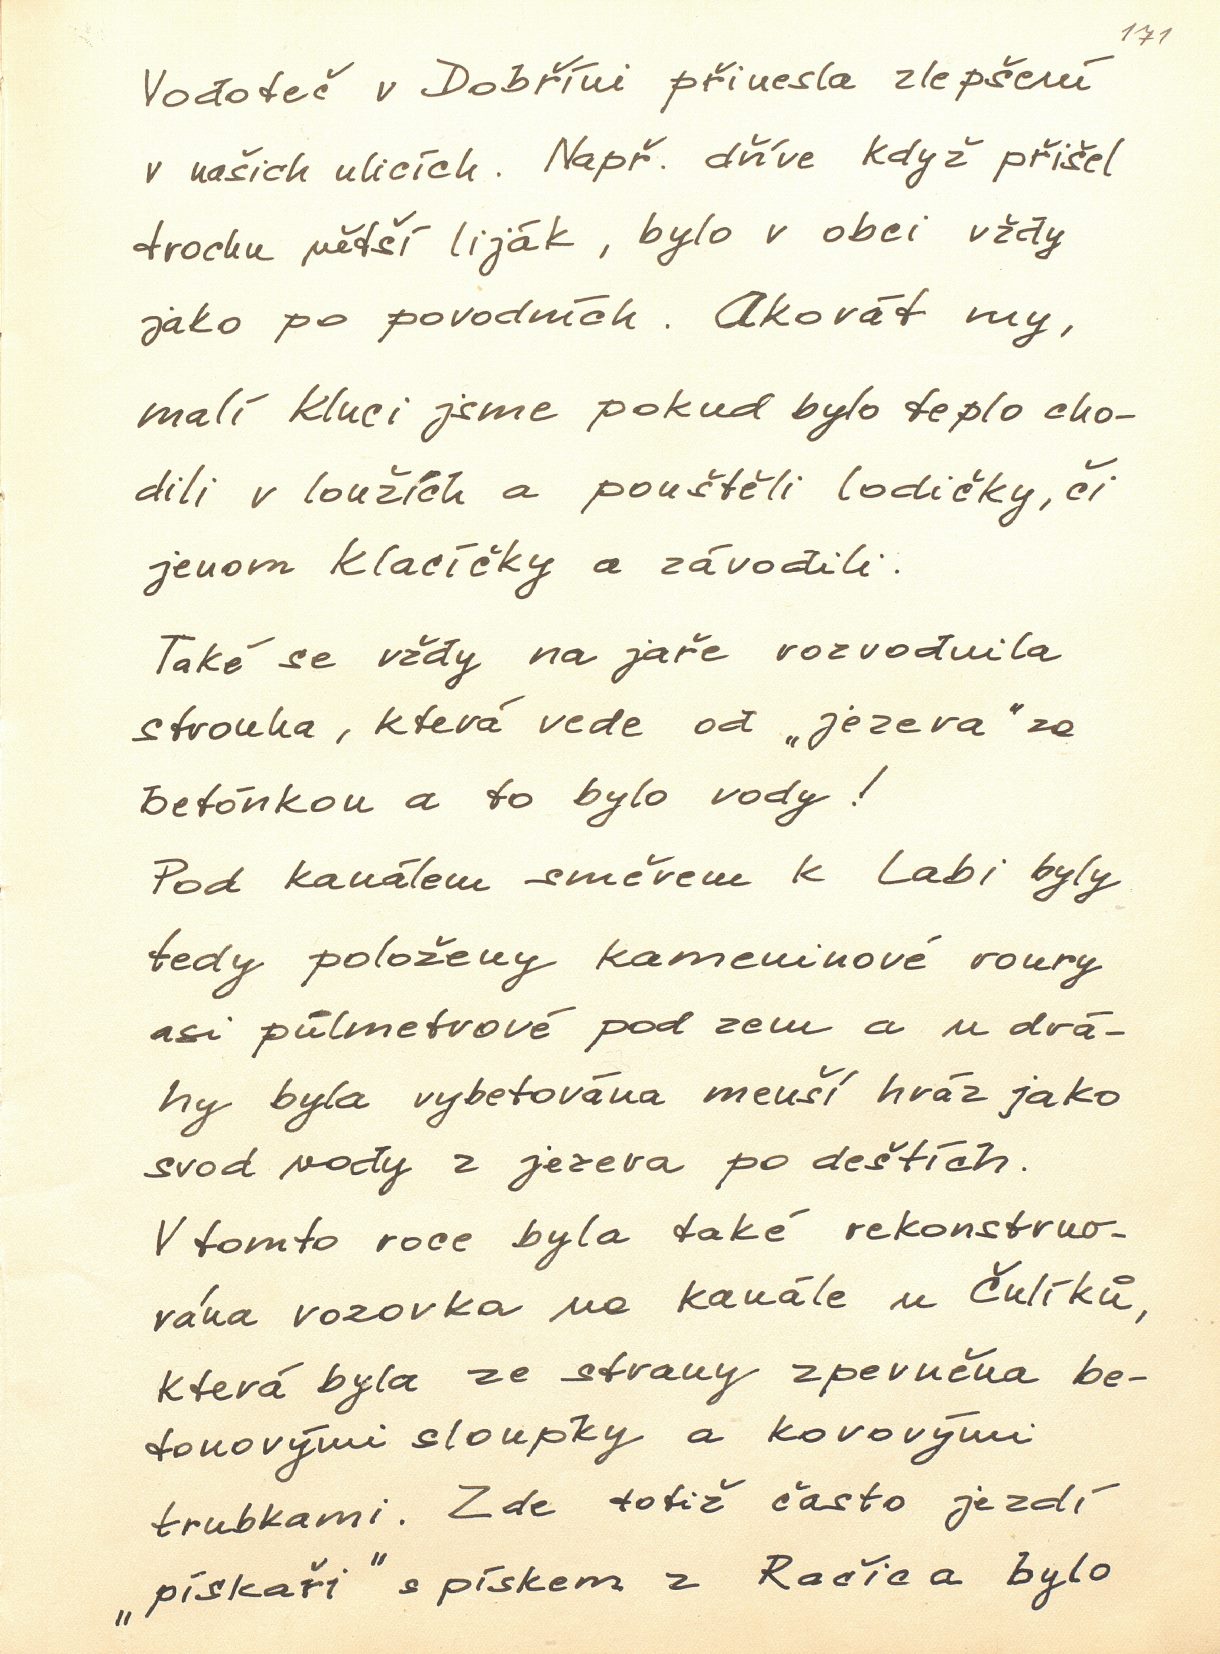 171
Vodoteč v Dobříni přinesla zlepšení
v našich ulicích. Např. dříve když přišel
trochu větší liják, bylo v obci vždy
jako po povodních. Akorát my,
malí kluci jsme pokud bylo teplo cho-
dili v loužích a pouštěli lodičky, či
jenom klacíčky a závodili.
Také se vždy na jaře rozvodnila
strouha, která vede od „jezera" za
betónkou a to bylo vody!
Pod kanálem směrem k Labi byly
tedy položeny kameninové roury
asi půlmetrové pod zem a u drá-
hy byla vybetována menší hráz jako
svod vody z jezera po deštích.
V tomto roce byla také rekonstruo-
vána vozovka na kanále u Čulíků,
která byla ze strany zpevněna be-
tonovými sloupky a kovovými
trubkami. Zde totiž často jezdí
„pískaři" s pískem z Račic a bylo